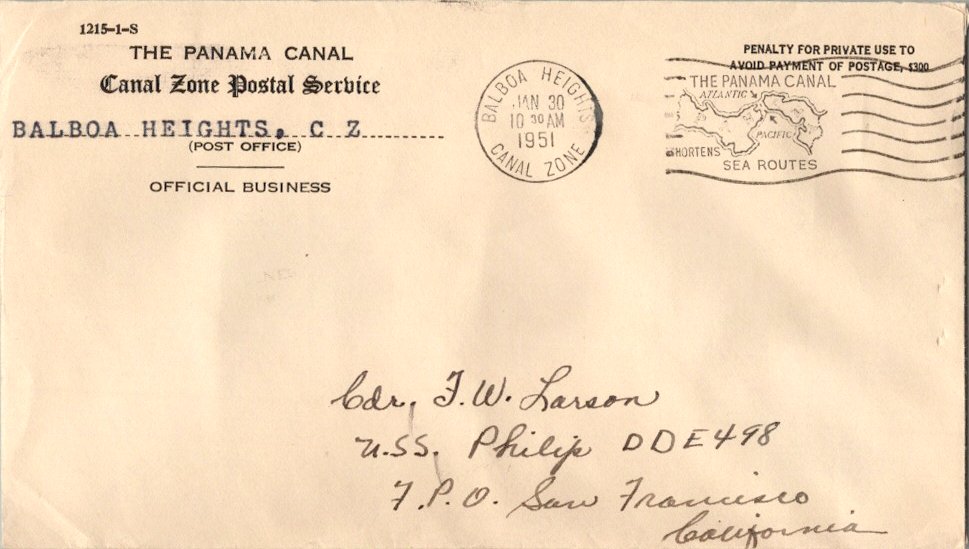 1215-1-S
THE PANAMA CANAL
Canal Zone Postal Service
BALBOA HEIGHTS, C Z
(POST OFFICE)
OFFICIAL BUSINESS
BALBOA HEIGHTS
JAN 30
10 30 AM
1951
CANAL ZONE
PENALTY FOR PRIVATE USE TO
AVOID PAYMENT OF POSTAGE, $300
THE PANAMA CANAL
ATLANTIC
PACIFIC
SHORTENS
SEA ROUTES
Cdr. F. W. Larson
U.S.S. Philip DDE498
F.P.O. San Francisco
California